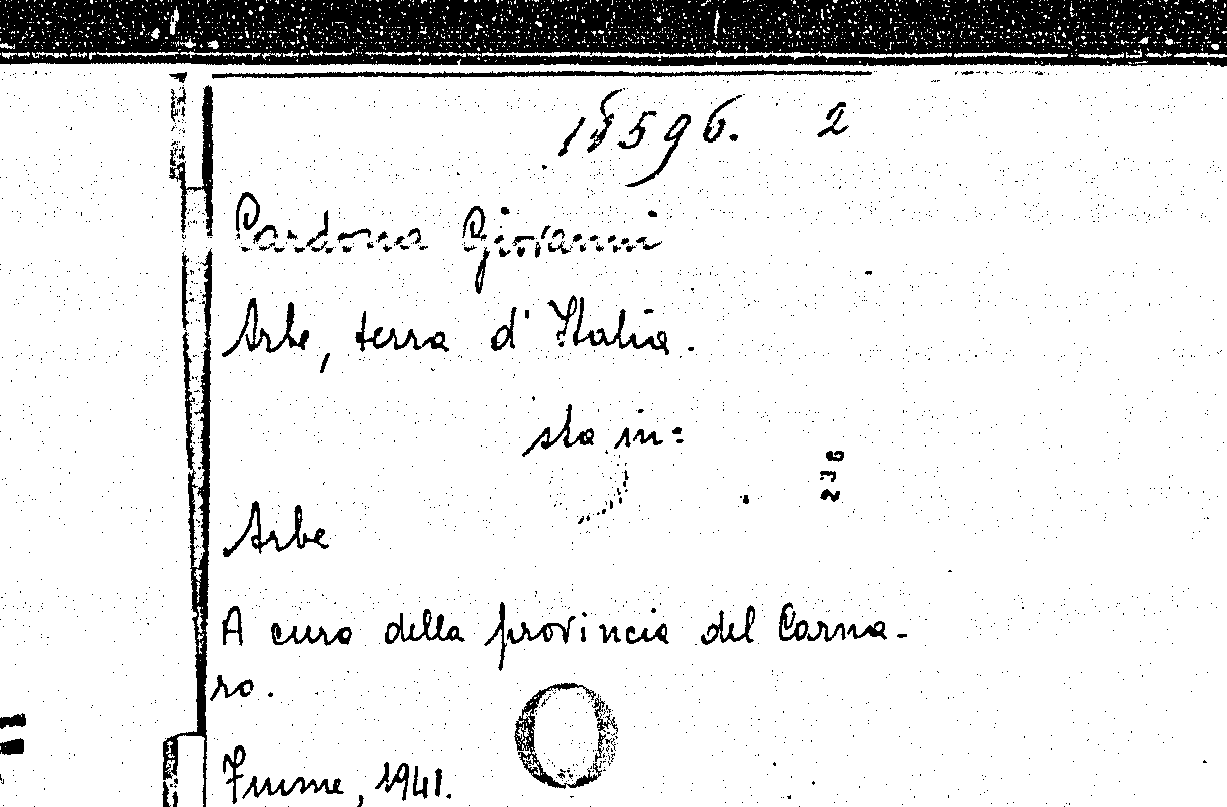 18596. 2
Cardona Giovanni
Arbe, terra d'Italia.
sta in:
236
Arbe
A cura della provincia del Carna-
ro.
Fiume, 1941.